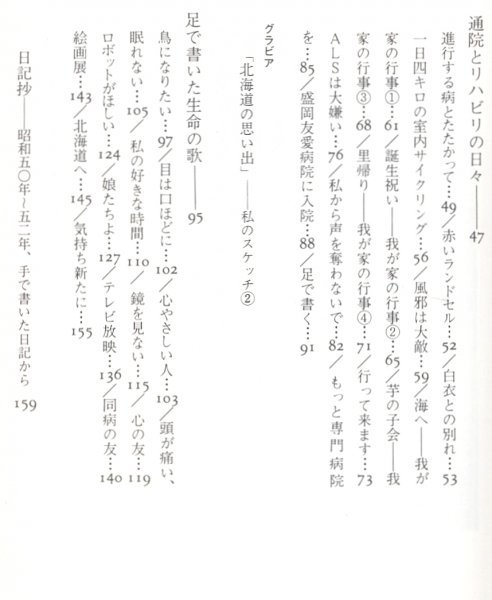 通院とリハビリの日々――47
進行する病とたたかって…49／赤いランドセル…52／白衣との別れ…53
一日四キロの室内サイクリング…56／風邪は大敵…59／海へ――我が
家の行事①…61／誕生祝い――我が家の行事②…65／芋の子会――我
家の行事③…68／里帰り――我が家の行事④…71／行って来ます…73
ALSは大嫌い…76／私から声を奪わないで…82／もっと専門病院
を…85／盛岡友愛病院に入院…88／足で書く…91
グラビア
「北海道の思い出」――私のスケッチ②
足で書いた生命の歌――95
鳥になりたい…97／目は口ほどに…102／心やさしい人…103／頭が痛い、
眠れない…105／私の好きな時間…110／鏡を見ない…115／心の友…119
ロボットがほしい…124／娘たちよ…127／テレビ放映…136／同病の友…140
絵画展…143／北海道へ…145／気持ち新たに…155
日記抄――昭和五〇年〜五二年、手で書いた日記から 159